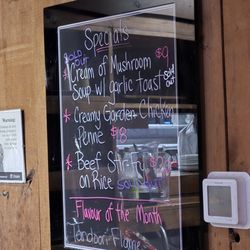 Specials
SOLD OUT
Cream of Mushroom $9
Soup w/ garlic toast
Creamy Garden Chicken
Penne $18
Beef Stir-Fry
on Rice SOLD OUT
Flavour of the Month
Warning: